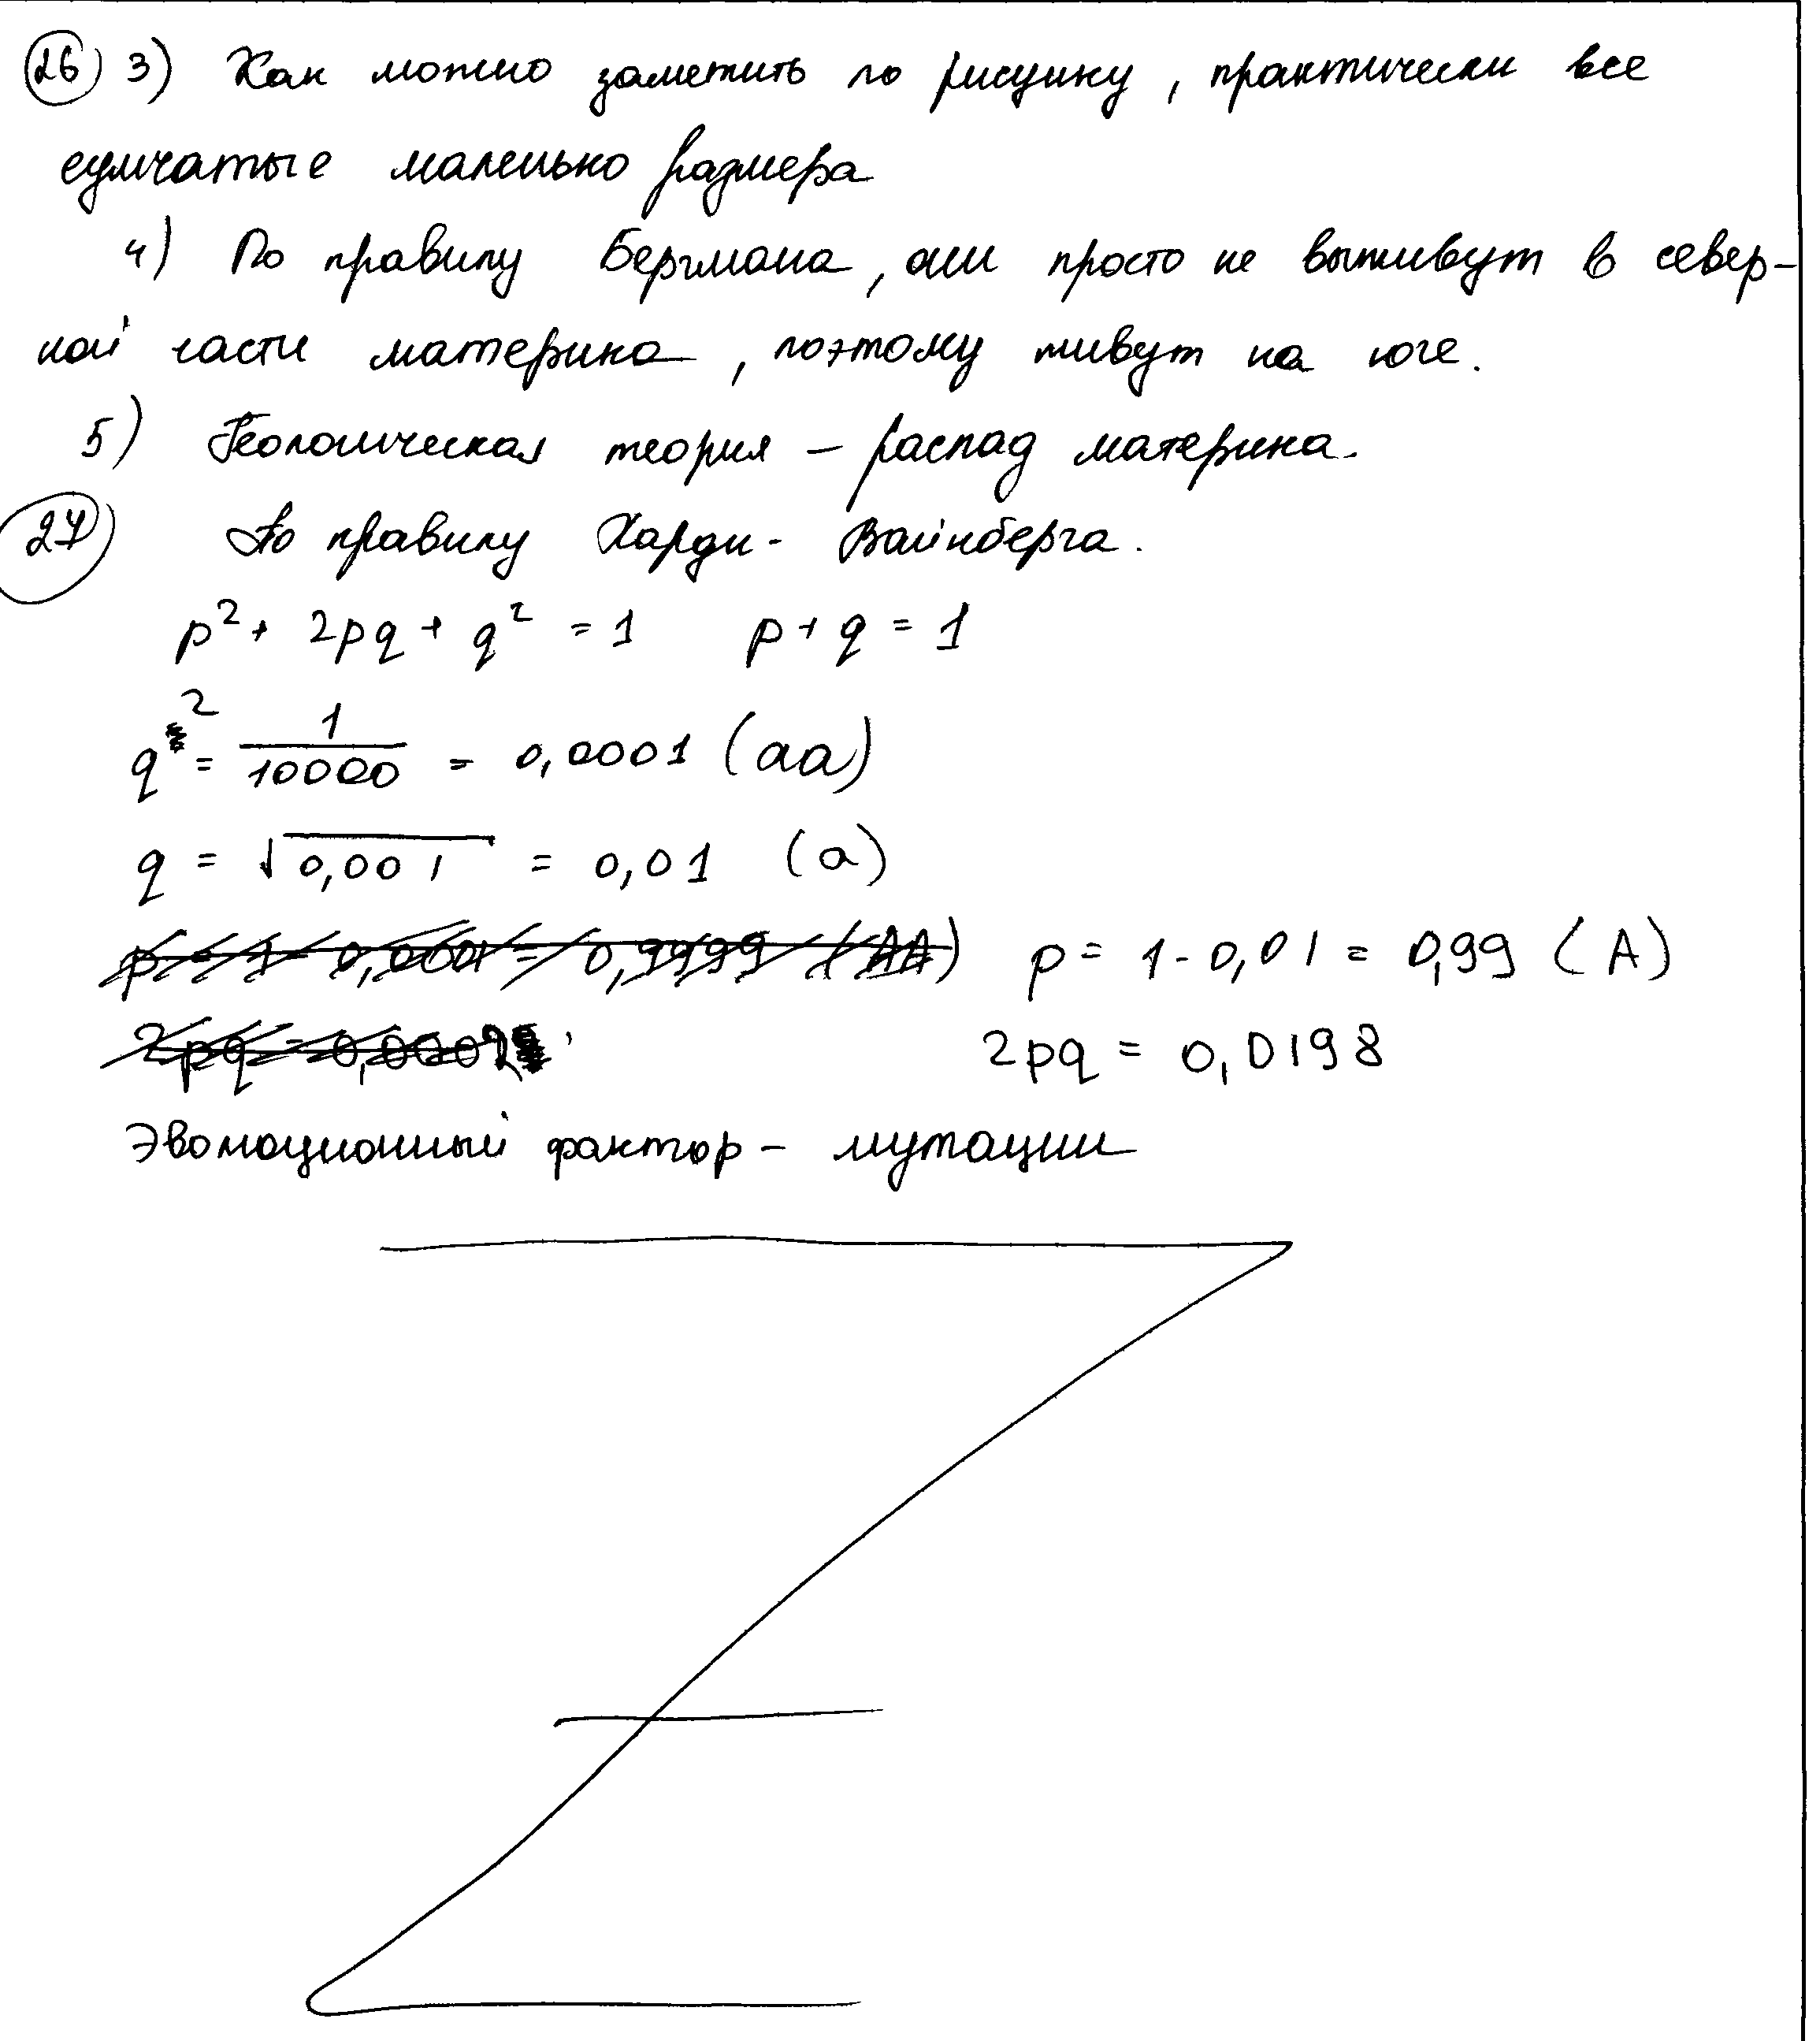 26 3) Как можно заметить по рисунку, практически все
сумчатые маленько размера
4) По правилу Бергмана, они просто не выживут в север-
ной части материка, поэтому живут на юге.
5) Геологическая теория – распад материка.
27 По правилу Харди-Вайнберга.
p² + 2pq + q² = 1 p + q = 1
q² = 1/10000 = 0,0001 (aa)
q = √0,001 = 0,01 (a)
p = 1 - 0,0001 = 0,9999 (AA) p = 1 - 0,01 = 0,99 (A)
2pq = 0,0002 2pq = 0,0198
Эволюционный фактор – мутации